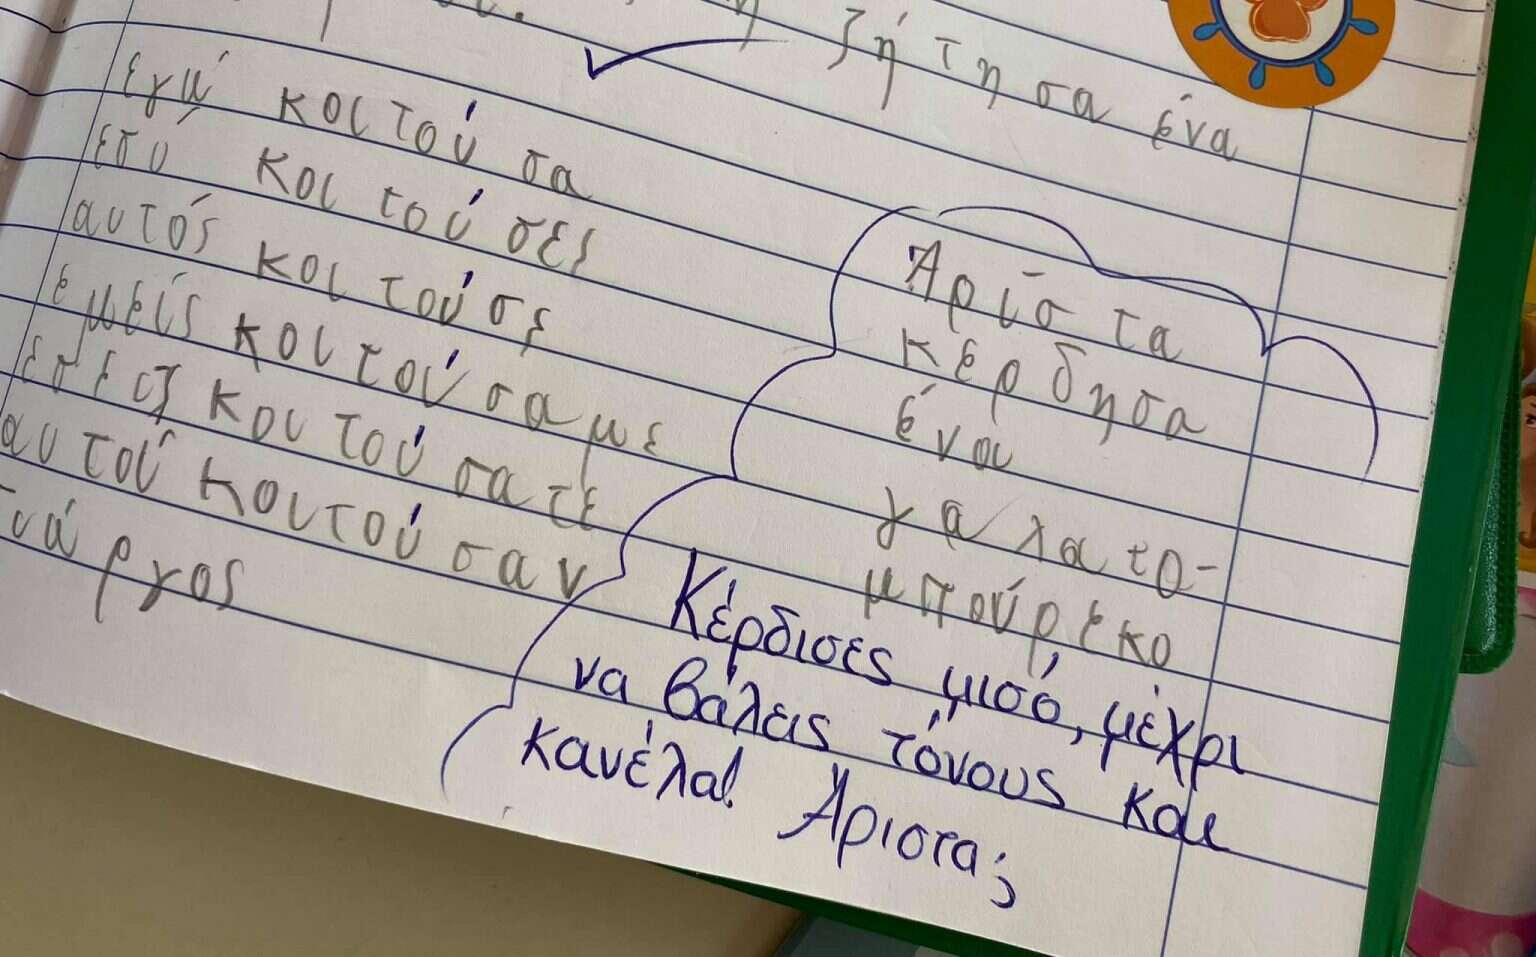 ζήτησα ένα
εγώ κοιτούσα
εσύ κοιτούσες
αυτός κοιτούσε
εμείς κοιτούσαμε
εσείς κοιτούσατε
αυτοί κοιτούσαν
νάργος
Άρίστα
κέρδησα
ένα
γαλατο-
μπούρεκο
Κέρδισες μισό, μέχρι
να βάλεις τόνους και
κανέλα! Άριστα;